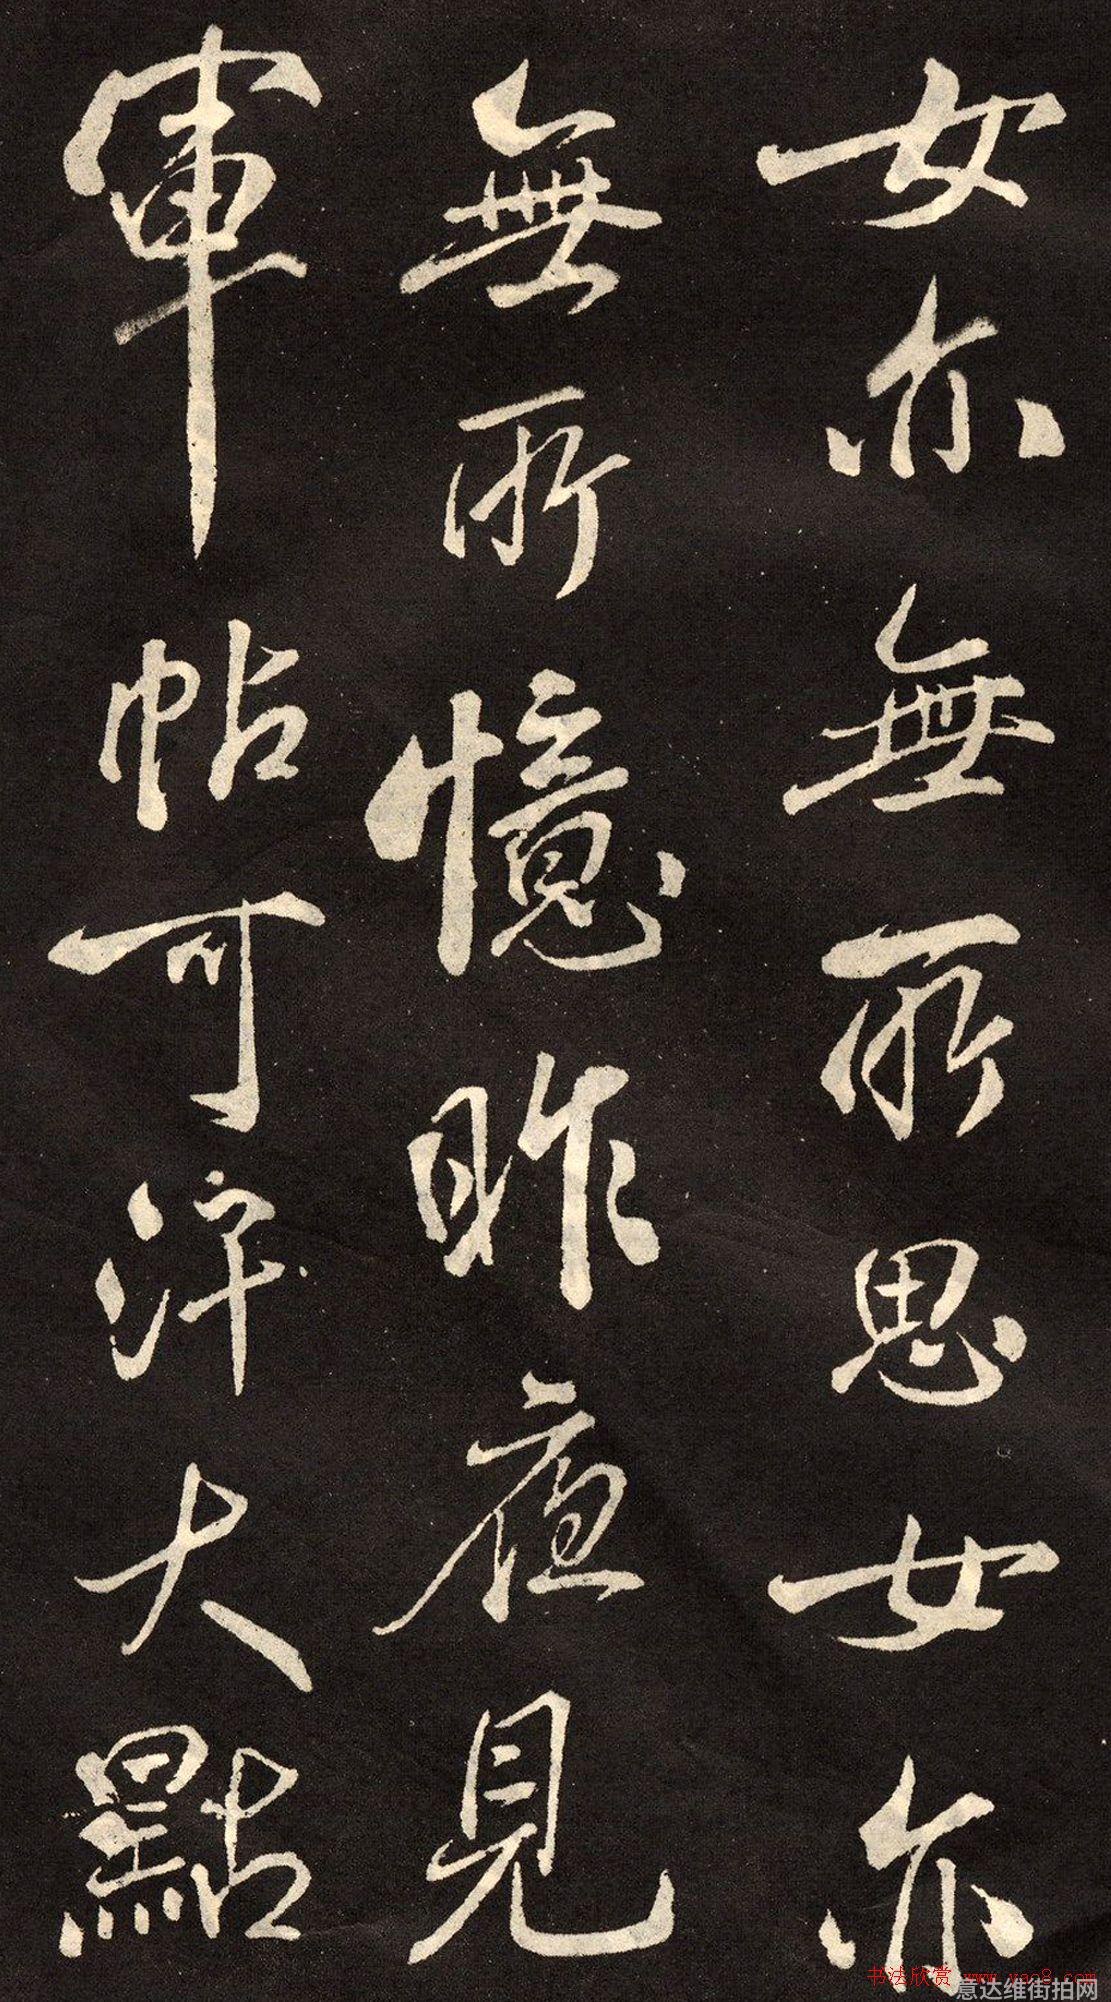 女亦無所思女亦
無所憶昨夜見
軍帖可汗大點
书法欣赏 www.yac8.com
意达维街拍网